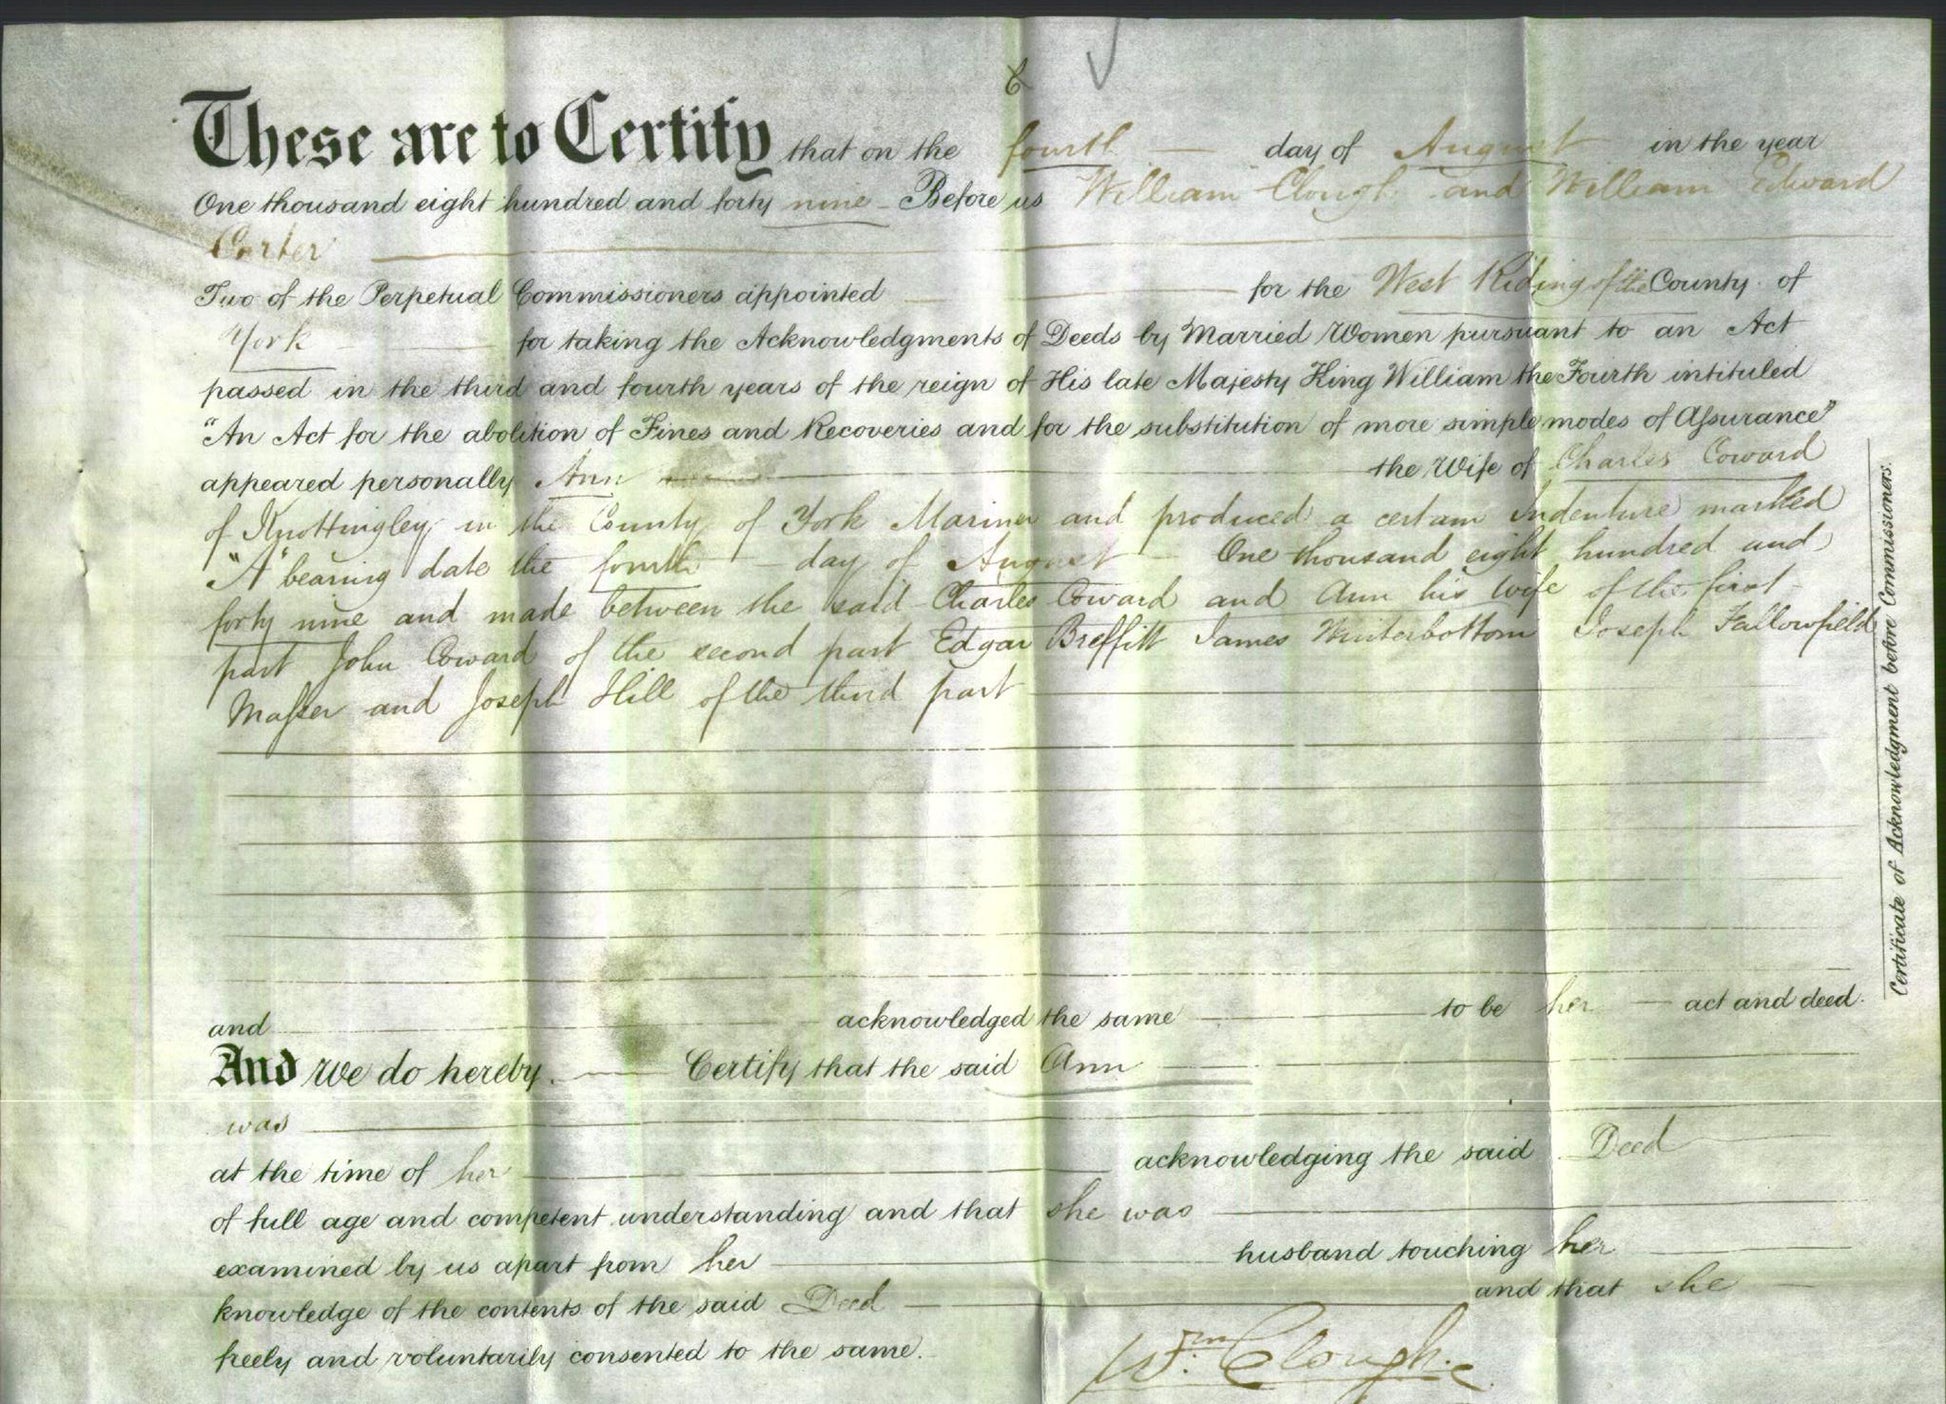 These are to Certify that on the fourth day of August in the year
One thousand eight hundred and forty nine Before us William Clough and William Edward
Carter
Two of the Perpetual Commissioners appointed for the West Riding of the County of
York for taking the Acknowledgments of Deeds by Married Women pursuant to an Act
passed in the third and fourth years of the reign of His late Majesty King William the Fourth intituled
"An Act for the abolition of Fines and Recoveries and for the substitution of more simple modes of Assurance"
appeared personally Ann the Wife of Charles Coward
of Knottingley in the County of York Mariner and produced a certain Indenture marked
"A" bearing date the fourth day of August One thousand eight hundred and
forty nine and made between the said Charles Coward and Ann his wife of the first
part John Coward of the second part Edgar Breffitt James Winterbottom Joseph Fallowfield
Masser and Joseph Hill of the third part
and acknowledged the same to be her act and deed.
And we do hereby Certify that the said Ann
was
at the time of her acknowledging the said Deed
of full age and competent understanding and that she was
examined by us apart from her husband touching her
knowledge of the contents of the said Deed and that she
freely and voluntarily consented to the same.
Wm. Clough
Certificate of Acknowledgment before Commissioners.